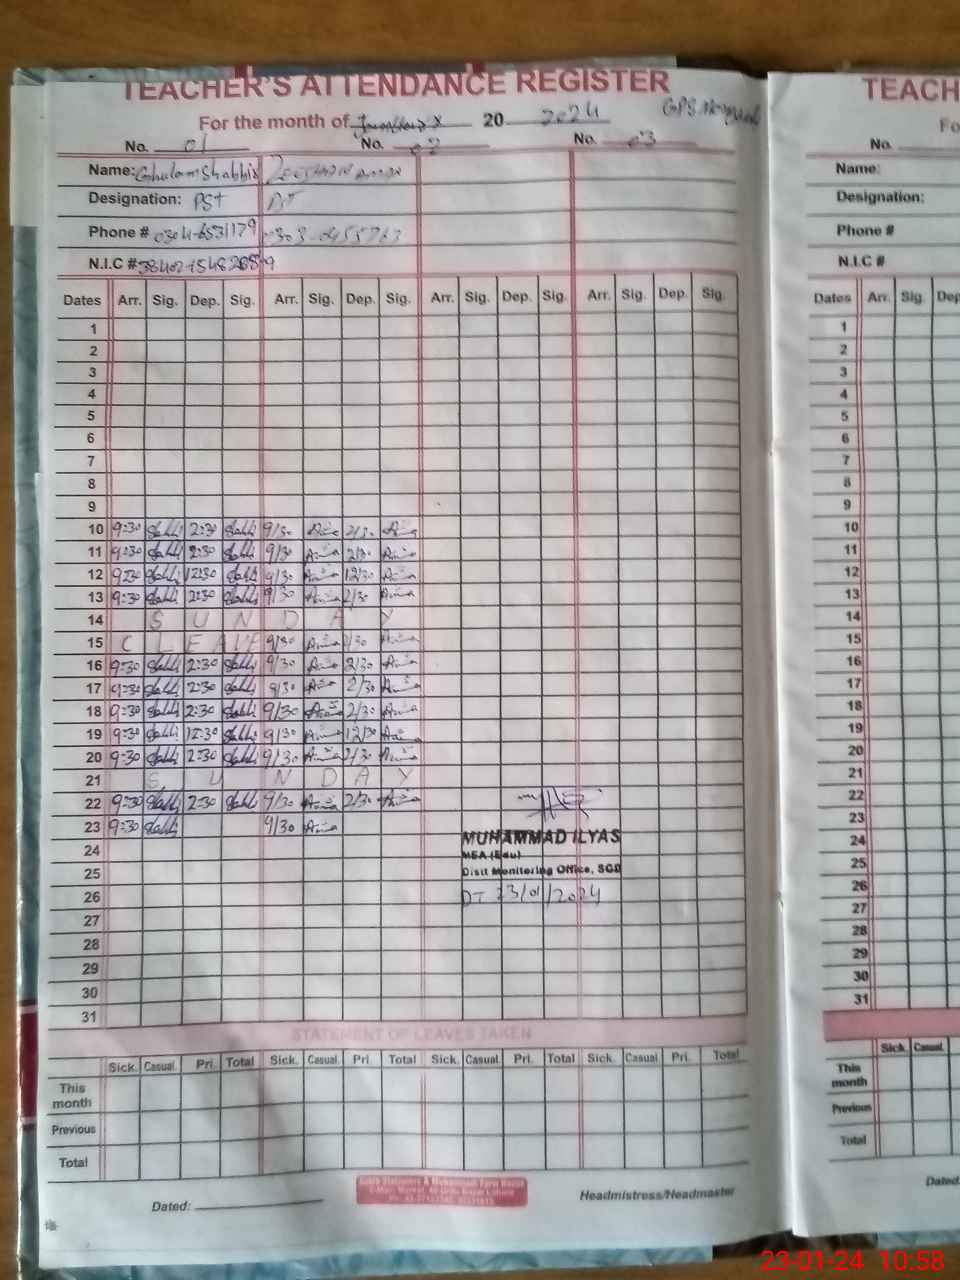 TEACHER'S ATTENDANCE REGISTER
For the month of January 20 2024
No. 01 No. 02 No. 03
Name: Ghulam Shabbir Zeeshan
Designation: PST
Phone # 0304-6531179 0303-0455763
N.I.C #
Dates Arr. Sig. Dep. Sig. Arr. Sig. Dep. Sig. Arr. Sig. Dep. Sig. Arr. Sig. Dep. Sig.
1
2
3
4
5
6
7
8
9
10 9:30 2:30 9/30 2/30
11 9:30 2:30 9/30 2/30
12 9:30 12:30 9/30 12/30
13 9:30 2:30 9/30 2/30
14 SUNDAY
15 C LEAVE 9/30 2/30
16 9:30 2:30 9/30 2/30
17 9:30 2:30 9/30 2/30
18 9:30 2:30 9/30 2/30
19 9:30 12:30 9/30 12/30
20 9:30 2:30 9/30 2/30
21 SUNDAY
22 9:30 2:30 9/30 2/30
23 9:30 9/30
MUHAMMAD ILYAS
24
MEA (Edu)
25 Distt Monitoring Office, SGD
26 DT 23/01/2024
27
28
29
30
31
STATEMENT OF LEAVES TAKEN
Sick. Casual. Pri. Total Sick. Casual. Pri. Total Sick. Casual. Pri. Total Sick. Casual. Pri. Total
This
month
Previous
Total
Dated: Headmistress/Headmaster
TEACH
Fo
No.
Name:
Designation:
Phone #
N.I.C #
Dates Arr. Sig. Dep
1
2
3
4
5
6
7
8
9
10
11
12
13
14
15
16
17
18
19
20
21
22
23
24
25
26
27
28
29
30
31
Sick. Casual.
This
month
Previous
Total
Dated.
23-01-24 10:58